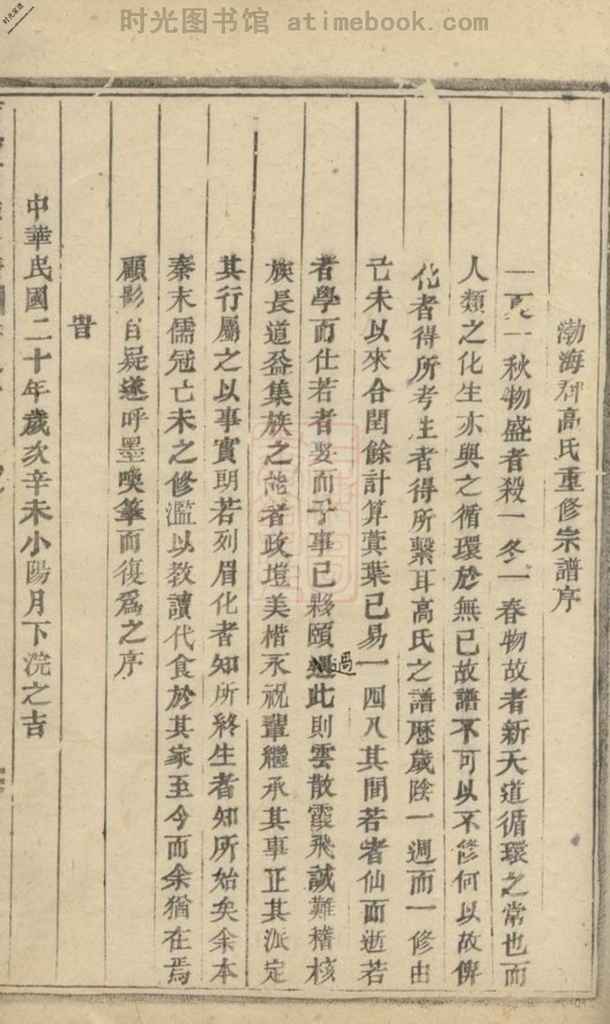 时光图书馆 atimebook.com
渤海郡高氏重修宗譜序
一夏一秋物盛者殺一冬一春物故者新天道循環之常也而
人類之化生亦與之循環於無已故譜不可以不修何以故俾
化者得所考生者得所繫耳高氏之譜歷歲陰一週而一修由
己未以來合閏餘計算蓂葉已易一四八其間若者仙而逝若
者學而仕若者娶而子事已夥頤過此則雲散霞飛誠難稽核
族長道益集族之能者政塏美楷永視輩繼承其事正其派定
其行屬之以事實明若列眉化者知所終生者知所始矣余本
秦末儒冠亡未之修濫以教讀代食於其家至今而余猶在焉
顧影自疑遂呼墨喚筆而復為之序
旹
中華民國二十年歲次辛未小陽月下浣之吉